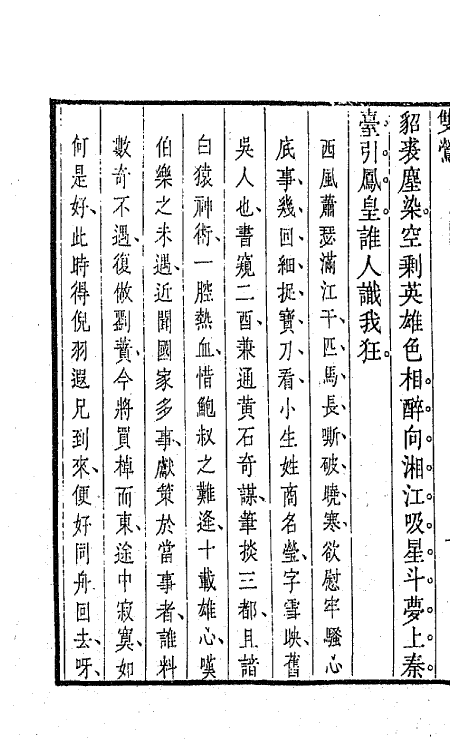 雙鶯
貂裘塵染空剩英雄色相醉向湘江吸星斗夢上秦
臺引鳳皇誰人識我狂
西風蕭瑟滿江干匹馬長嘶破曉寒欲慰牢騷心
底事幾回細捉寶刀看小生姓商名瑩字雪映舊
吳人也書窺二酉兼通黃石奇謀筆掞三都且諳
白猿神術一腔熱血惜鮑叔之難逢十載雄心嘆
伯樂之未遇近聞國家多事獻策於當事者誰料
數奇不遇復倣劉蕡今將買棹而東途中寂寞如
何是好此時得倪羽遐兄到來便好同舟回去呀